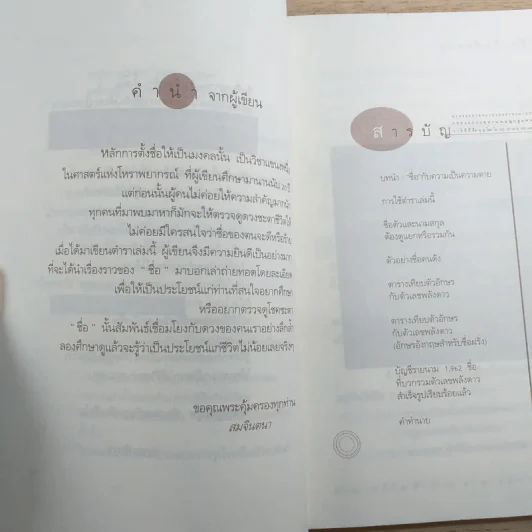 คำนำ จากผู้เขียน
หลักการตั้งชื่อให้เป็นมงคลนั้น เป็นวิชาแขนงหนึ่ง
ในศาสตร์แห่งโหราพยากรณ์ ที่ผู้เขียนศึกษามานานนับ
แต่ก่อนนั้นผู้คนไม่ค่อยให้ความสำคัญมากนัก
ทุกคนที่มาพบมาหาก็มักจะให้ตรวจดูดวงชะตาชีวิตให้
ไม่ค่อยมีใครสนใจว่าชื่อของตนจะดีหรือร้าย
เมื่อได้มาเขียนตำราเล่มนี้ ผู้เขียนจึงมีความยินดีเป็นอย่างมาก
ที่จะได้นำเรื่องราวของ " ชื่อ " มาบอกเล่าถ่ายทอดโดยละเอียด
เพื่อให้เป็นประโยชน์แก่ท่านที่สนใจอยากศึกษา
หรืออยากตรวจดูโชคชะตา
" ชื่อ " นั้นสัมพันธ์เชื่อมโยงกับดวงของคนเราอย่างลึกล้ำ
ลองศึกษาดูแล้วจะรู้ว่าเป็นประโยชน์แก่ชีวิตไม่น้อยเลยจริงๆ
ขอคุณพระคุ้มครองทุกท่าน
สมจินตนา
สารบัญ
บทนำ : "ชื่อ" กับความเป็นความตาย
การใช้ตำราเล่มนี้
ชื่อตัวและนามสกุล
ต้องดูแยกหรือรวมกัน
ตัวอย่างชื่อคนดัง
ตารางเทียบตัวอักษร
กับตัวเลขพลังดาว
ตารางเทียบตัวอักษร
กับตัวเลขพลังดาว
(อักษรอังกฤษสำหรับชื่อฝรั่ง)
บัญชีรายนาม 1,962 ชื่อ
ที่บวกรวมตัวเลขพลังดาว
สำเร็จรูปเรียบร้อยแล้ว
คำทำนาย